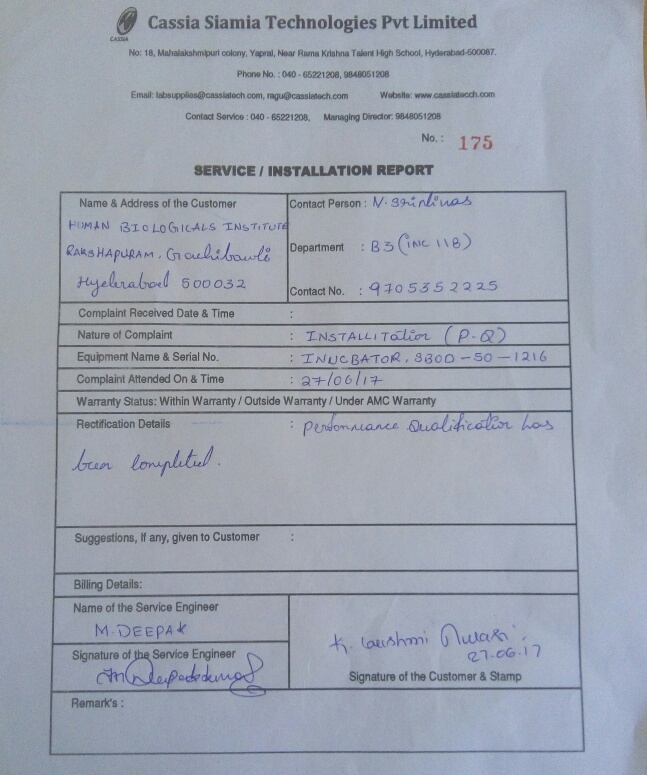 CASSIA
Cassia Siamia Technologies Pvt Limited
No: 18, Mahalakshmipuri colony, Yapral, Near Rama Krishna Talent High School, Hyderabad-500087.
Phone No. : 040 - 65221208, 9848051208
Email: labsupplies@cassiatech.com, ragu@cassiatech.com Website: www.cassiatecch.com
Contact Service : 040 - 65221208, Managing Director: 9848051208
No. : 175
SERVICE / INSTALLATION REPORT
Name & Address of the Customer
HUMAN BIOLOGICALS INSTITUTE
RAKSHAPURAM, Gachibowli
Hyderabad 500032
Contact Person : N. Srinivas
Department : B3 (INC 118)
Contact No. : 9705352225
Complaint Received Date & Time :
Nature of Complaint : INSTALLITATION (P-Q)
Equipment Name & Serial No. : INNUCBATOR, SBOD-50-1216
Complaint Attended On & Time : 27/06/17
Warranty Status: Within Warranty / Outside Warranty / Under AMC Warranty
Rectification Details : Performance Qualification has
been completed.
Suggestions, If any, given to Customer :
Billing Details:
Name of the Service Engineer
M. DEEPAK
Signature of the Service Engineer
K. Lakshmi
27.06.17
Signature of the Customer & Stamp
Remark's :